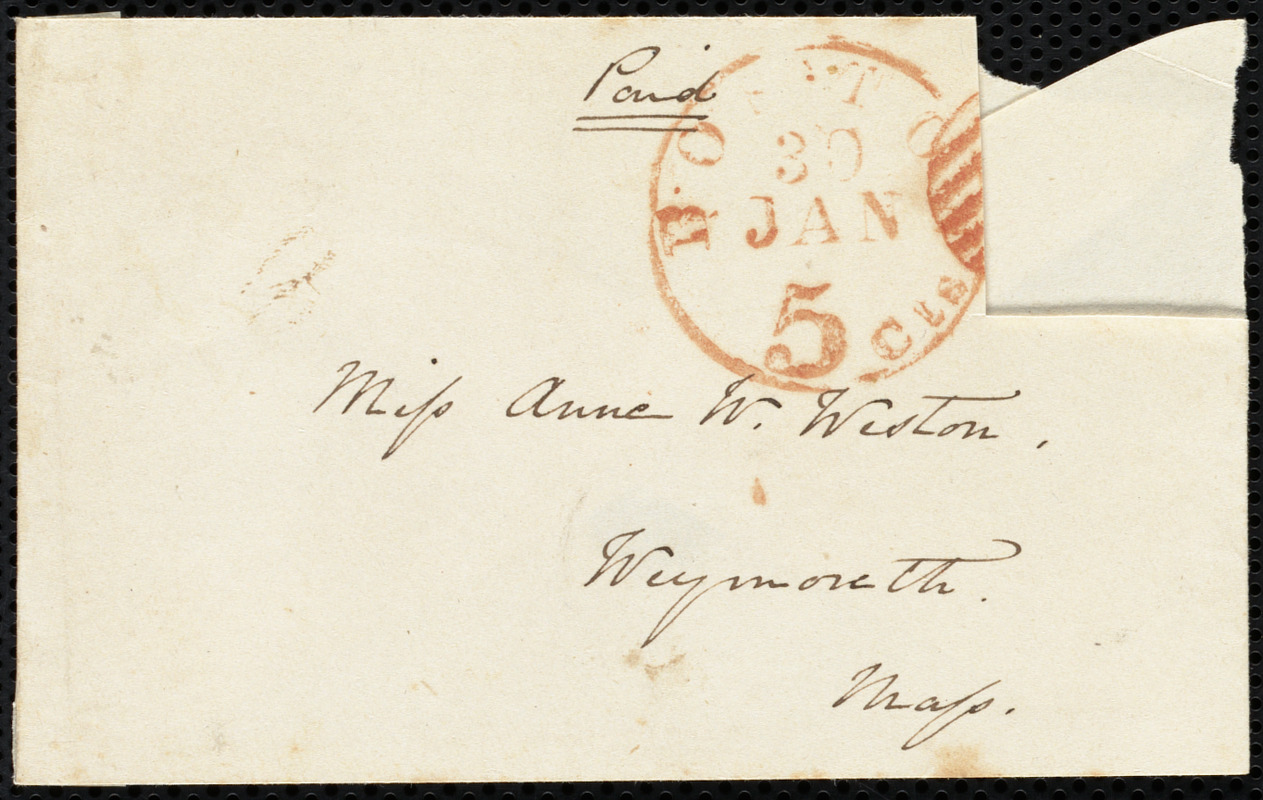 Paid
BOSTO
30
JAN
5 Cts
Miſs Anne W. Weston.
Weymouth.
Maſs.